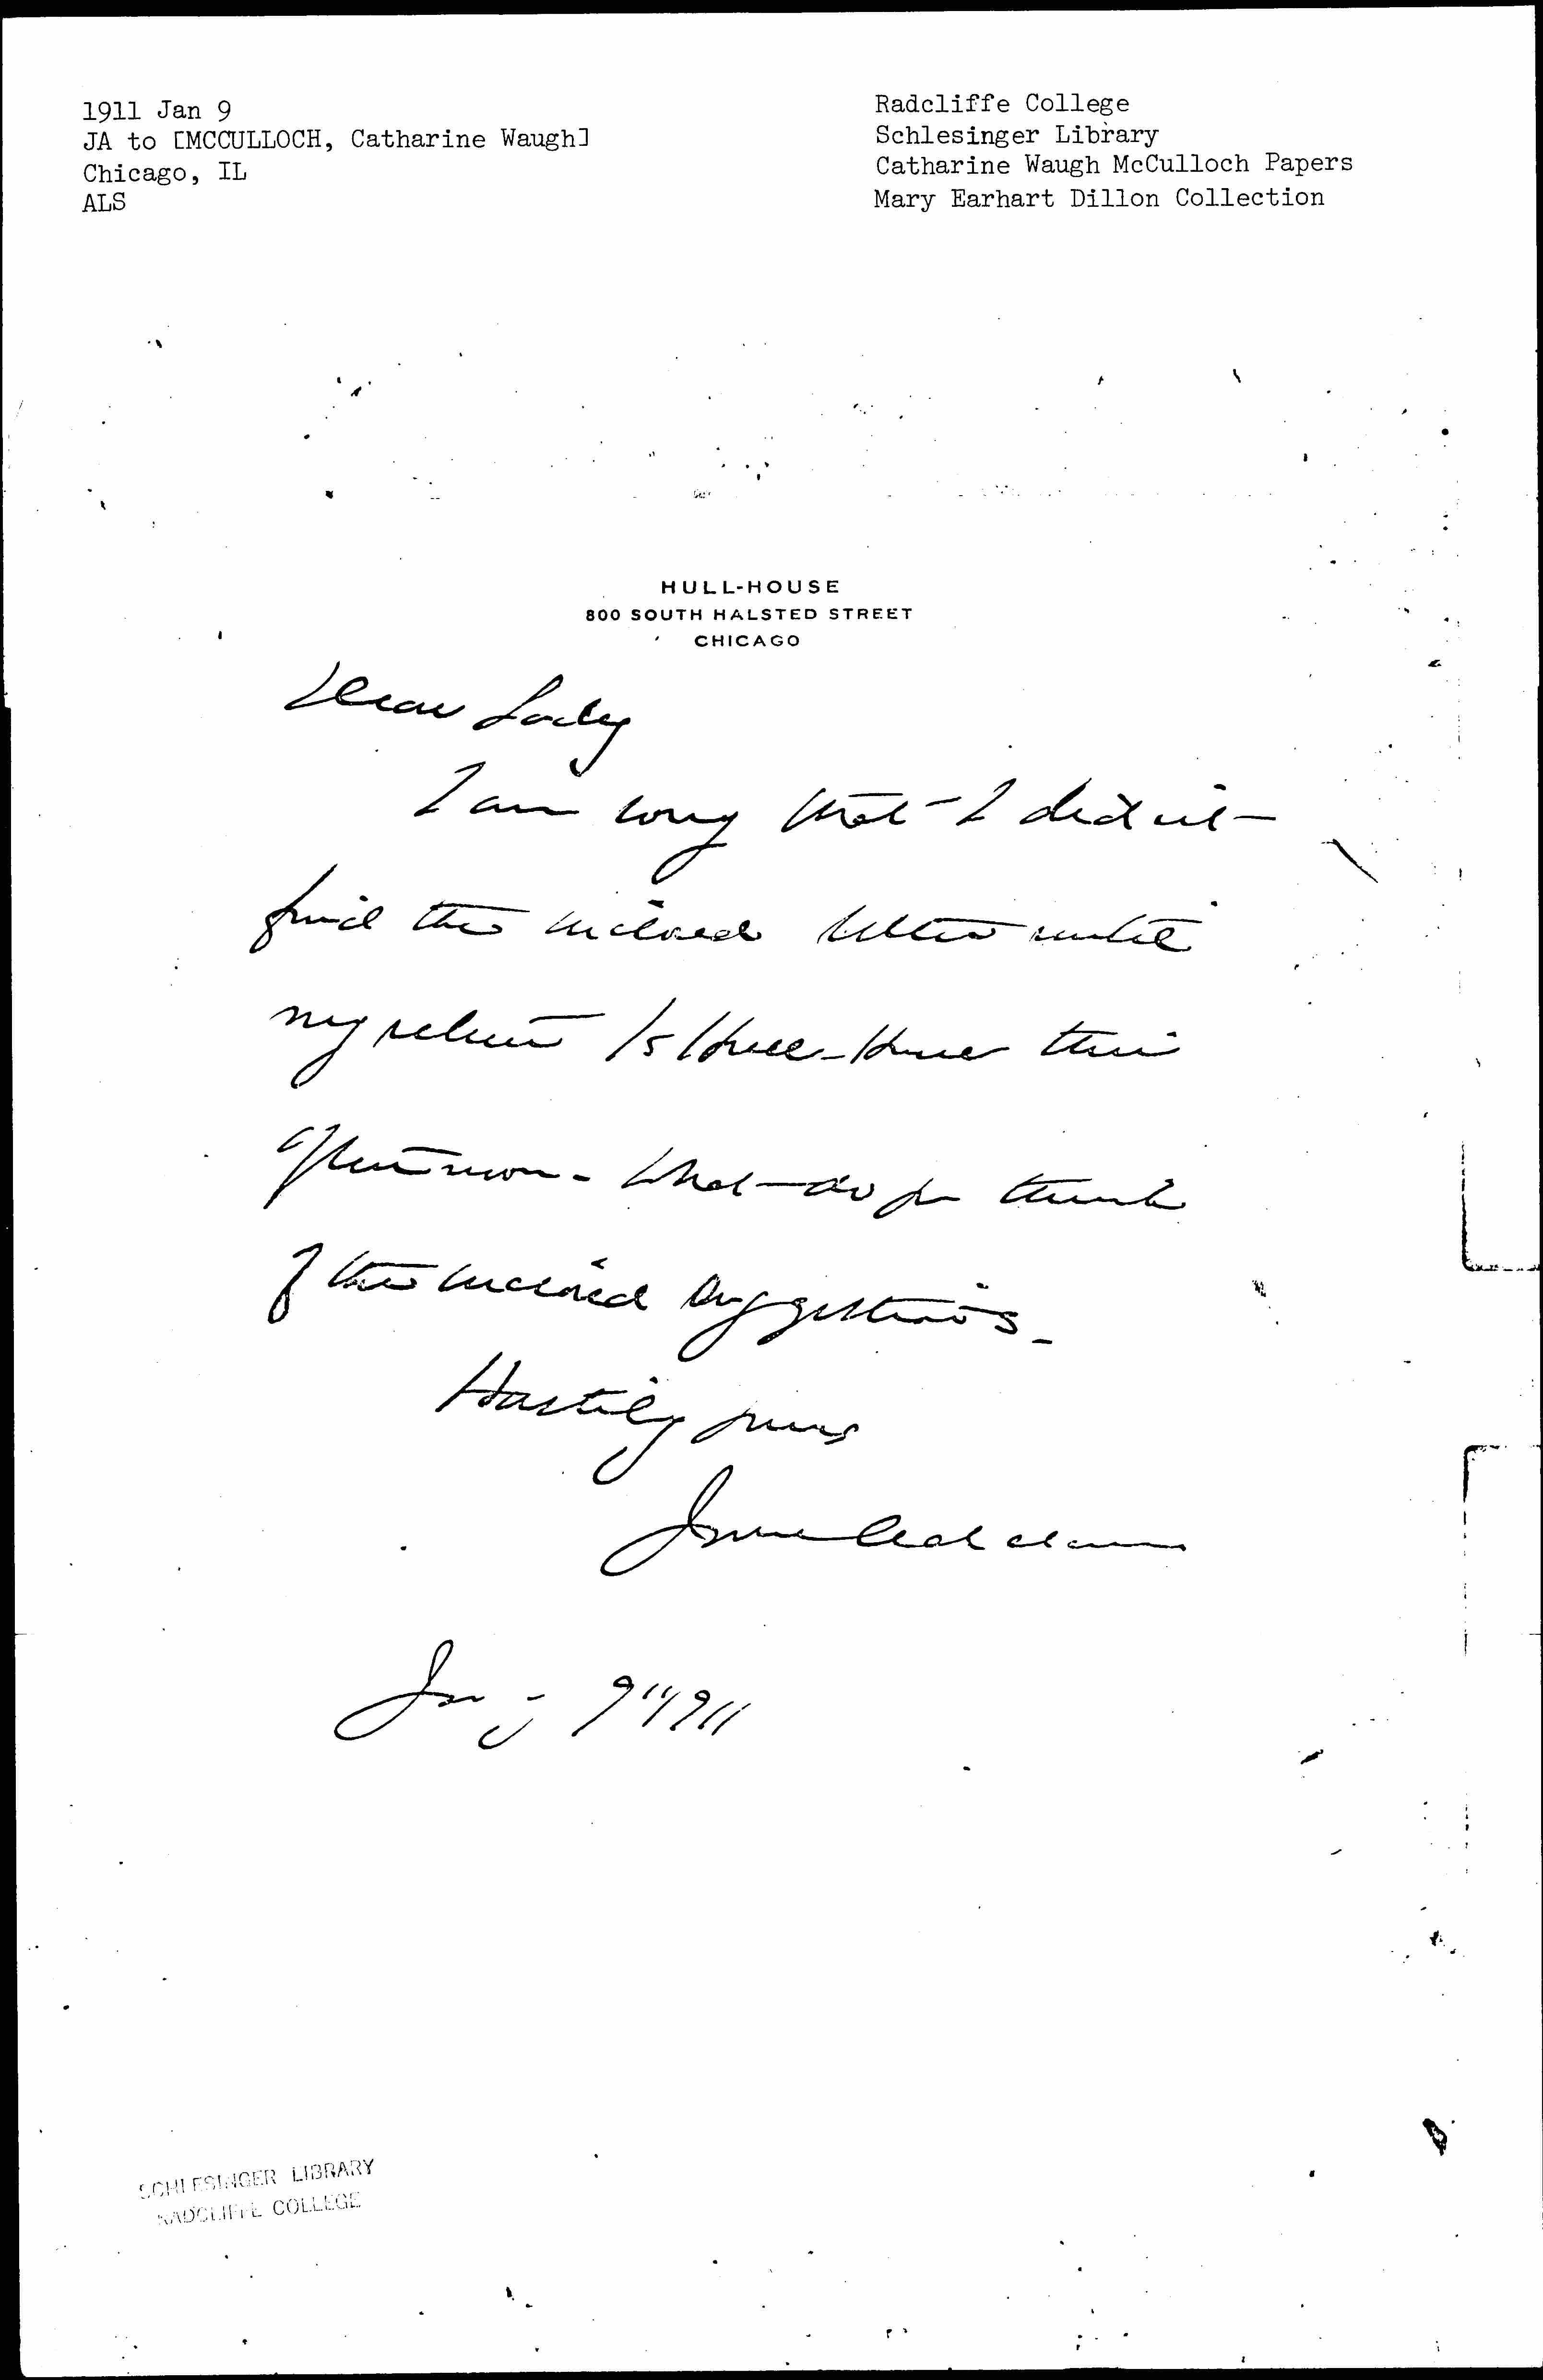 1911 Jan 9
JA to [MCCULLOCH, Catharine Waugh]
Chicago, IL
ALS
Radcliffe College
Schlesinger Library
Catharine Waugh McCulloch Papers
Mary Earhart Dillon Collection
HULL-HOUSE
800 SOUTH HALSTED STREET
CHICAGO
Dear Lady
I am sorry that I didn't
find the inclosed letter until
my return to Hull-House this
afternoon - What do you think
of the inclosed suggestions -
Hastily yours
Jane Addams
Jany 9" 1911
SCHLESINGER LIBRARY
RADCLIFFE COLLEGE